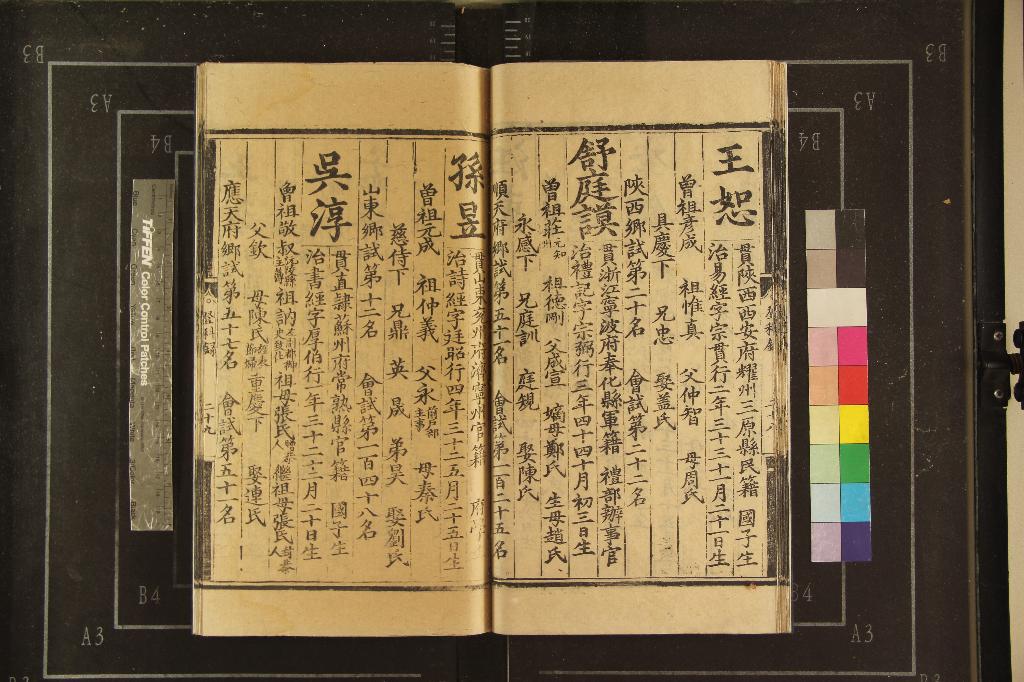 王恕
貫陝西西安府耀州三原縣民籍 國子生
治易經字宗貫行一年三十三十一月二十一日生
曽祖彥成 祖惟真 父仲智 母周氏
具慶下 兄忠 娶蓋氏
陝西鄉試第二十名 會試第二十二名
舒庭謨
貫浙江寧波府奉化縣軍籍 禮部辦事官
治禮記字宗弼行三年四十四十月初三日生
曽祖莊 祖德剛 父咸宣 嫡母鄭氏 生母趙氏
永感下 兄庭訓 庭規 娶陳氏
順天府鄉試第五十一名 會試第一百二十五名
孫昱
治詩經字廷昭行四年三十二五月二十五日生
曽祖元成 祖仲義 父永 母秦氏
慈侍下 兄鼎 英 晟 弟昊 娶劉氏
山東鄉試第十二名 會試第一百四十八名
吳淳
貫直隸蘇州府常熟縣官籍 國子生
治書經字厚伯行一年三十二十二月二十日生
曾祖敬叔 祖訥 祖母張氏 繼祖母張氏
父欽 母陳氏 重慶下 娶連氏
應天府鄉試第五十七名 會試第五十一名
二十九
B3
A3
B4
TIFFEN Color Control Patches
B4
A3
B3
A3
B4
B4
A3